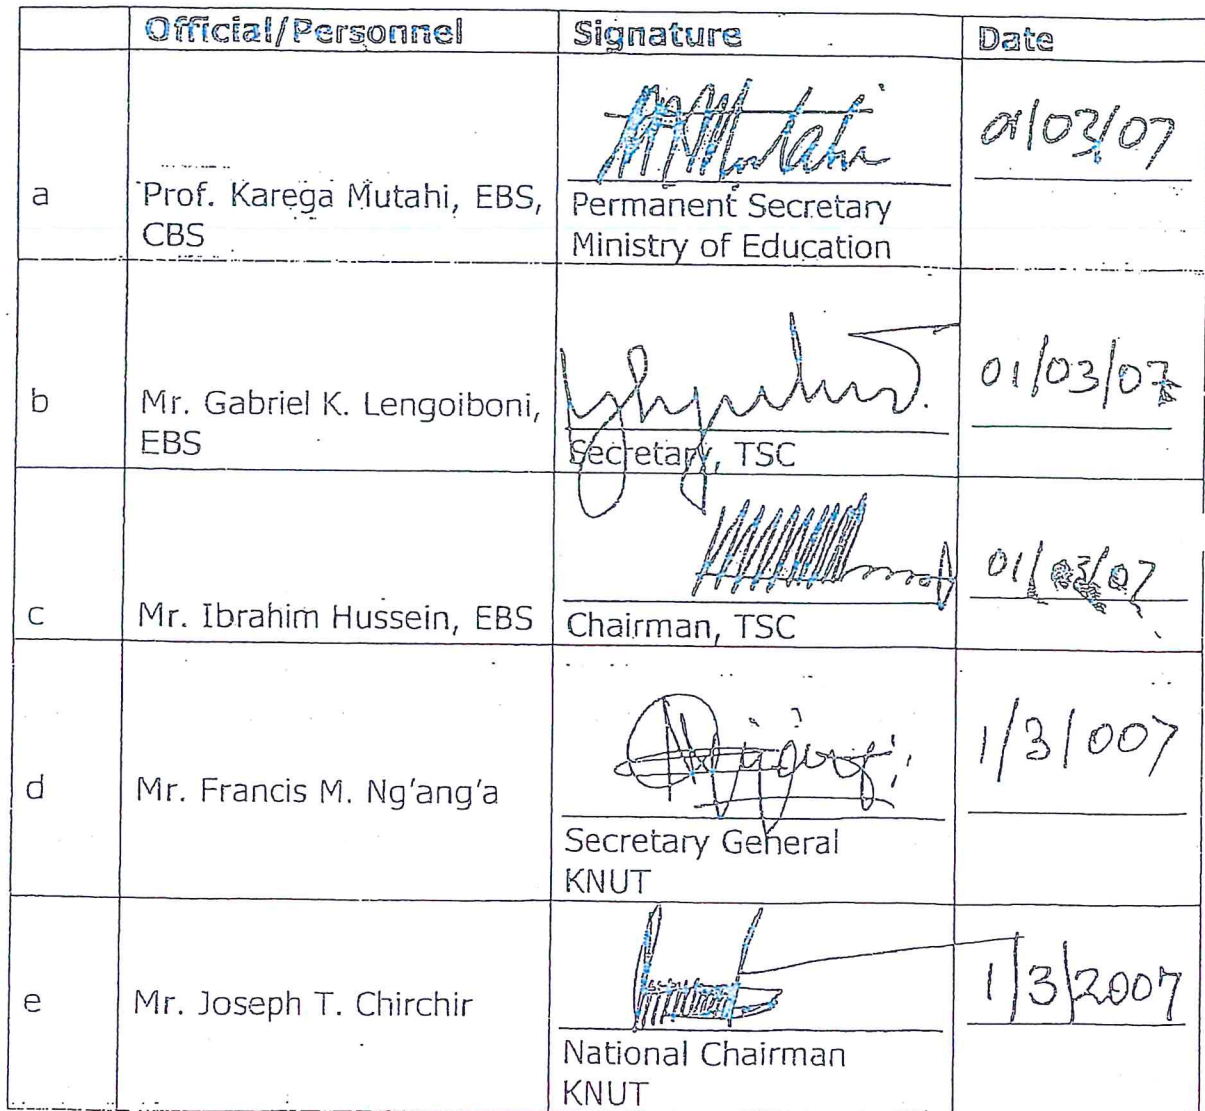 Official/Personnel Signature Date
a
Prof. Karega Mutahi, EBS,
CBS
Permanent Secretary
Ministry of Education
01/03/07
b
Mr. Gabriel K. Lengoiboni,
EBS
Secretary, TSC
01/03/07
c
Mr. Ibrahim Hussein, EBS
Chairman, TSC
01/03/07
d
Mr. Francis M. Ng'ang'a
Secretary General
KNUT
1/3/007
e
Mr. Joseph T. Chirchir
National Chairman
KNUT
1/3/2007